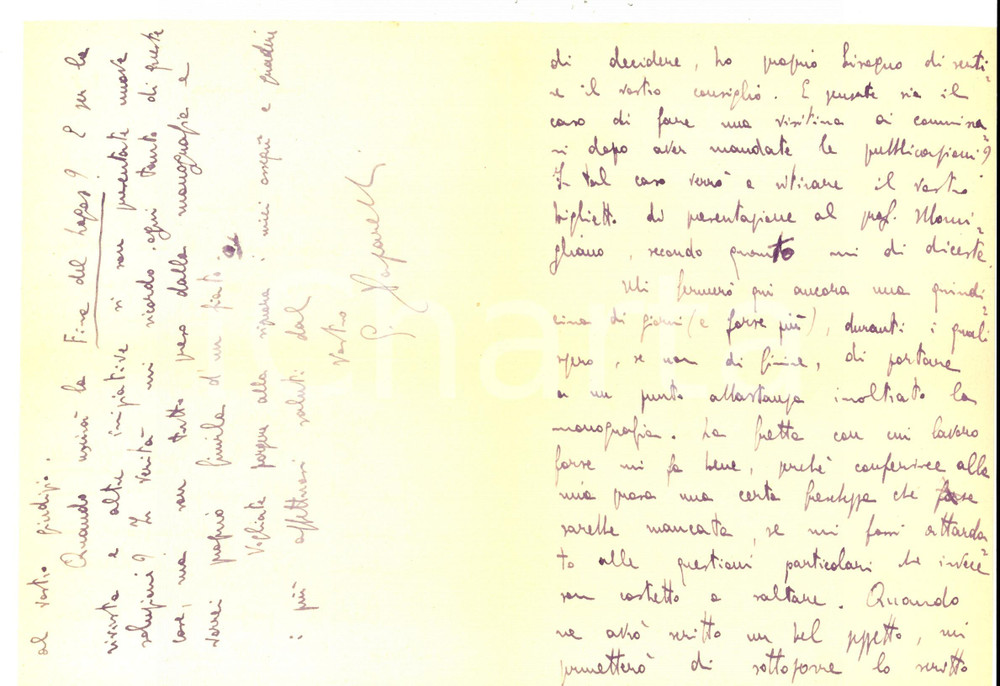 di decidere, ho proprio bisogno di senti=
re il vostro consiglio. E pensate sia il
caso di fare una visitina ai commissa=
ri dopo aver mandate le pubblicazioni?
In tal caso verrò a ritirare il vostro
biglietto di presentazione al prof. Momi=
gliano, secondo quanto mi di diceste.
Mi fermerò qui ancora una quindi=
cina di giorni (e forse più), duranti i quali
spero, se non di finire, di portare
a un punto abbastanza inoltrato la
monografia. La fretta con cui lavoro
forse mi fa bene, perchè conferisce alla
mia prosa una certa freschezza che forse
sarebbe mancata, se mi fossi attarda=
to alle questioni particolari che invece
son costretto a saltare. Quando
ne avrò scritto un bel pezzetto, mi
permetterò di sottoporre lo scritto
al vostro giudizio.
Quando uscirà la Fine del? E per la
rivista e altre iniziative si son presentate nuove
soluzioni? In verità mi ricordo ogni tanto di queste
cose, ma son tutto preso dalla monografia e
vorrei proprio finirla d'un fiato.
Vogliate porgere alla signora i miei ossequi e gradire
i più affettuosi saluti dal
vostro
G. Paparelli
Charta